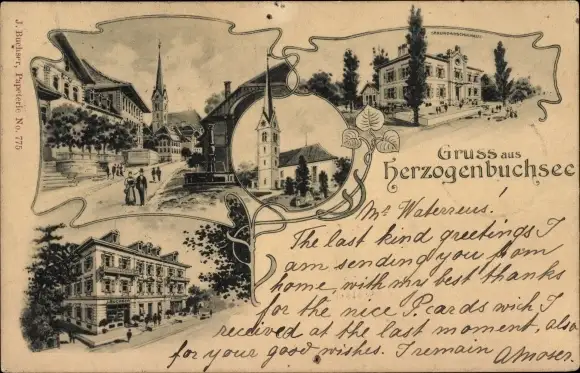 J. Buchser, Papeterie No. 775
Gruss aus
Herzogenbuchsee
Mr Waterreus!
The last kind greetings I
am sending you from
home, with my best thanks
for the nice P. cards wich I
received at the last moment, also
for your good wishes. I remain
A Moser.